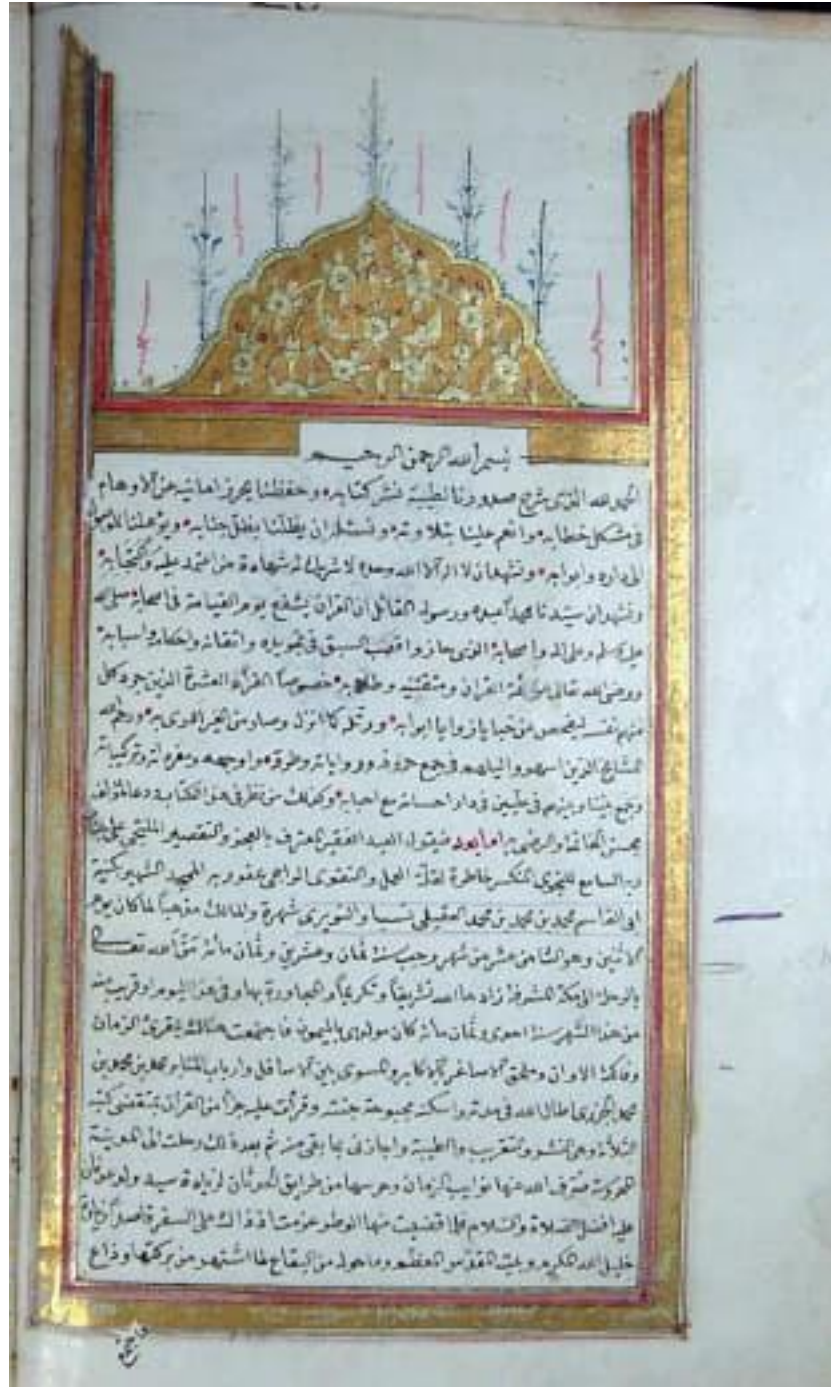 بسم الله الرحمن الرحيم
الحمد لله الذى شرح صدورنا لطيبة نشر كتابه وحفظنا بحرز امانيه عن الاوهام
فى مشكل خطابه وانعم علينا بتلاوته ونسئله ان يظلنا بظل جنابه ويؤهلنا للوصول
الى داره وابوابه ونشهد ان لا اله الا الله وحده لا شريك له شهادة من اعتمد عليه وكفى به
ونشهد ان سيدنا محمدا عبده ورسوله القائل ان القران يشفع يوم القيامة فى اصحابه صلى الله
عليه وسلم وعلى اله واصحابه الذين حازوا قصب السبق فى تجويده واتقانه واحكام اسبابه
ورضى الله تعالى عن ائمة القران ومتقنيه وطلابه خصوصا القراء العشرة الذين جرد كل
منهم نفسه ليفحص عن خبايا زوايا ابوابه ورتله كما انزل وصار من الخير ادرى به ورحم الله
المشايخ الذين اسهروا ليلهم فى جمع حروفه ورواياته وطرقه واوجهه ومفرداته وتركيباته
وجمع بيننا وبينهم فى عليين فى دار احسانه مع احبابه وكذلك من نظر فى هذا الكتاب ودعا لمؤلفه
بحسن الخاتمة والرضى به اما بعد فيقول العبد الفقير المعترف بالعجز والتقصير الملتجى على جناب
ربه السامع للنجوى المنكسر خاطره لقلة العمل والتقوى الراجى عفو ربه المجيد الشهير بكنية
ابى القاسم محمد بن محمد بن محمد العقيلى نسبا والنويرى شهرة ولمالك مذهبا لما كان يوم
الاثنين وهو الثامن عشر من شهر رجب سنة ثمان وعشرين وثمان مائة منّ الله تعالى
بالرحلة الى مكة المشرفة زادها الله تشريفا وتكريما والمجاورة بها وفى هذا اليوم او قريب منه
من هذا الشهر سنة احدى وثمان مائة كان مولدى بالميمون فاجتمعت هنالك بمقرئ الزمان
وفاكهة الاوان وملحق الاصاغر بالاكابر والمسوى بين الاسافل وارباب المنابر محمد بن محمد بن
محمد الجزرى اطال الله فى مدته واسكنه بحبوحة جنته وقرأت عليه جزأ من القران بمقتضى كتبه
الثلاثة وهى النشر والتقريب والطيبة واجازنى بما بقى منه ثم بعد ذلك رحلت الى المدينة
المحروسة صرف الله عنها نوايب الزمان وحرسها من طرايق الحدثان لزيارة سيد ولد عدنان
عليه افضل الصلاة والسلام فلما قضيت منها الوطر عزمت اذ ذاك على السفر قاصدا زيارة
خليل الله الكريم وبيته المقدس المعظم وما حوله من البقاع لما اشتهر من بركتها وذاع